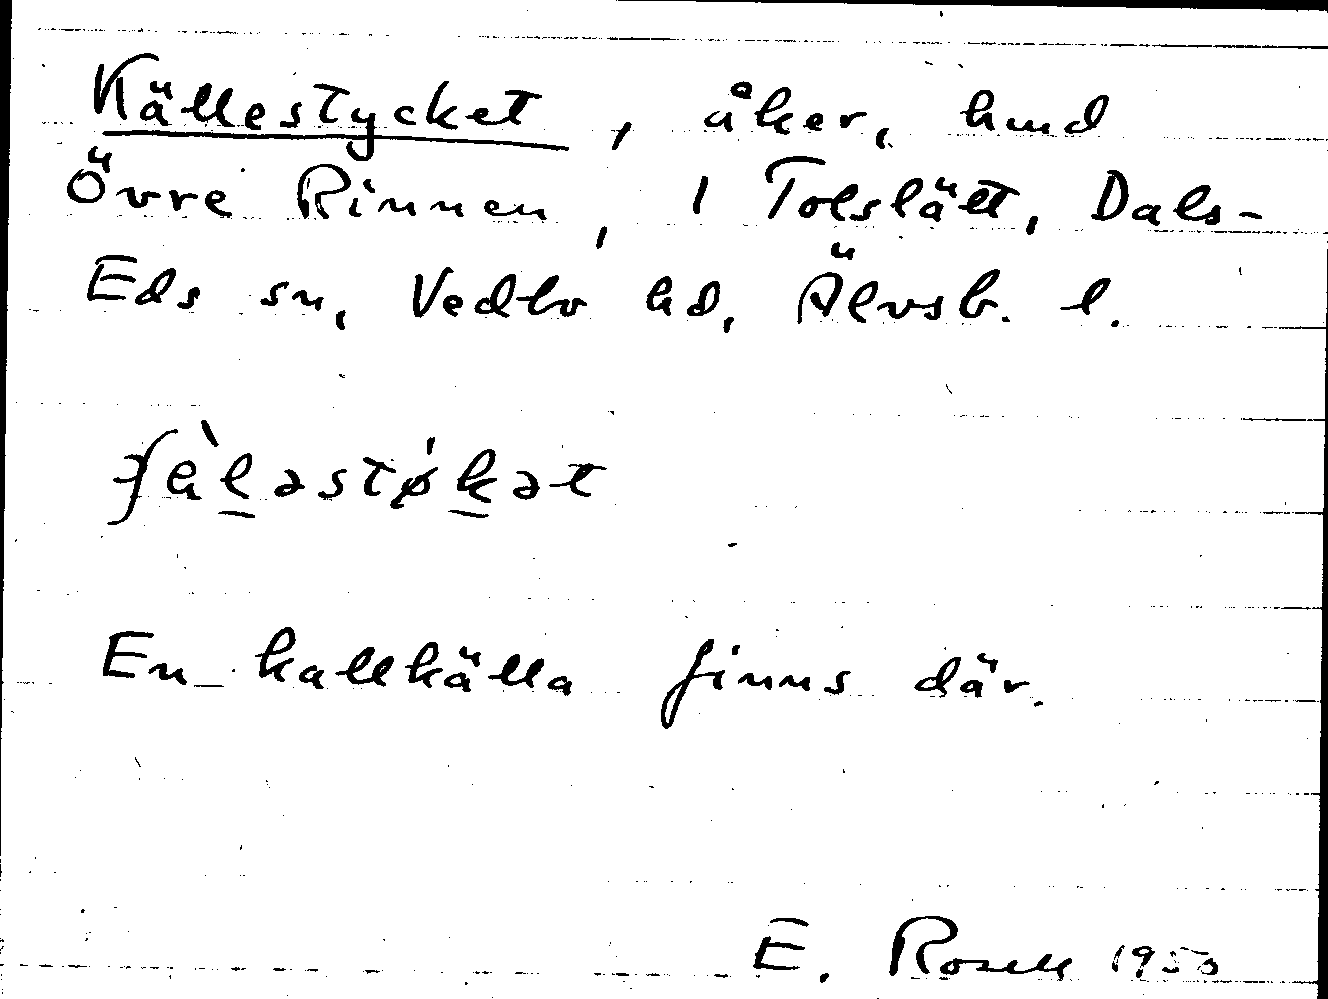 Källestycket, åker, hmd
Övre Rinnen, 1 Tolslätt, Dals-
Eds sn, Vedbo hd, Älvsb. l.
En kallkälla finns där.
E. Rosell 1950